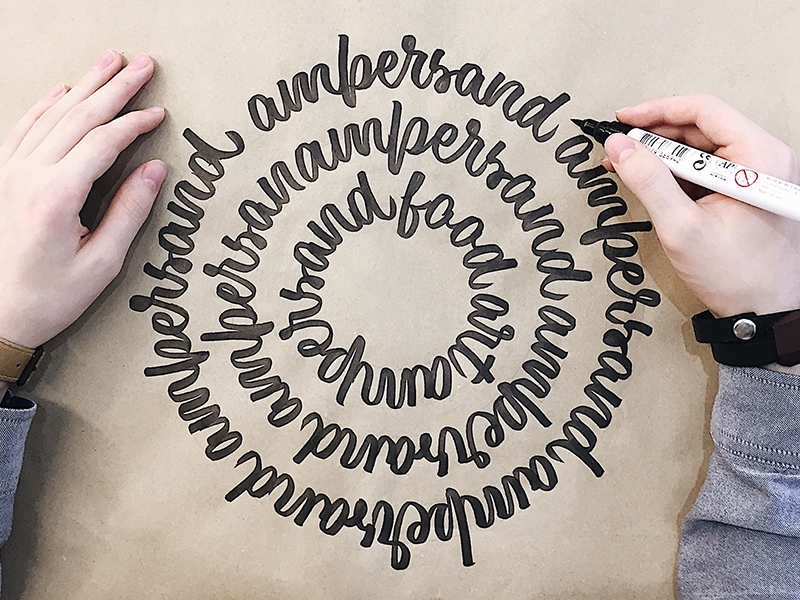 ampersand ampersand ampersand ampersand
ampersand ampersand ampersand ampersan
food art ampersand